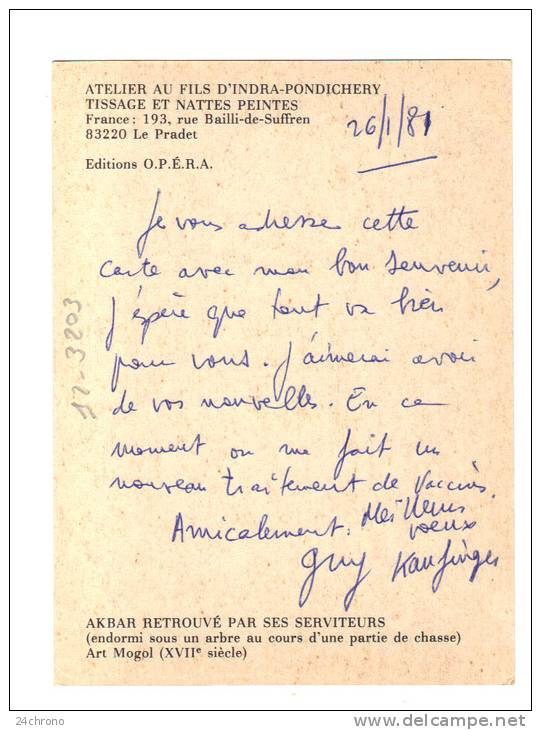 ATELIER AU FILS D'INDRA-PONDICHERY
TISSAGE ET NATTES PEINTES
France : 193, rue Bailli-de-Suffren
83220 Le Pradet
26/1/81
Editions O.P.É.R.A.
Je vous adresse cette
carte avec mon bon souvenir,
j'éspère que tout va bien
pour vous. J'aimerai avoir
de vos nouvelles. En ce
moment on me fait un
nouveau traitement de vaccins.
Amicalement. Meilleurs
voeux
Guy
17-3203
AKBAR RETROUVÉ PAR SES SERVITEURS
(endormi sous un arbre au cours d'une partie de chasse)
Art Mogol (XVIIe siècle)
24chrono
http://www.delcampe.net